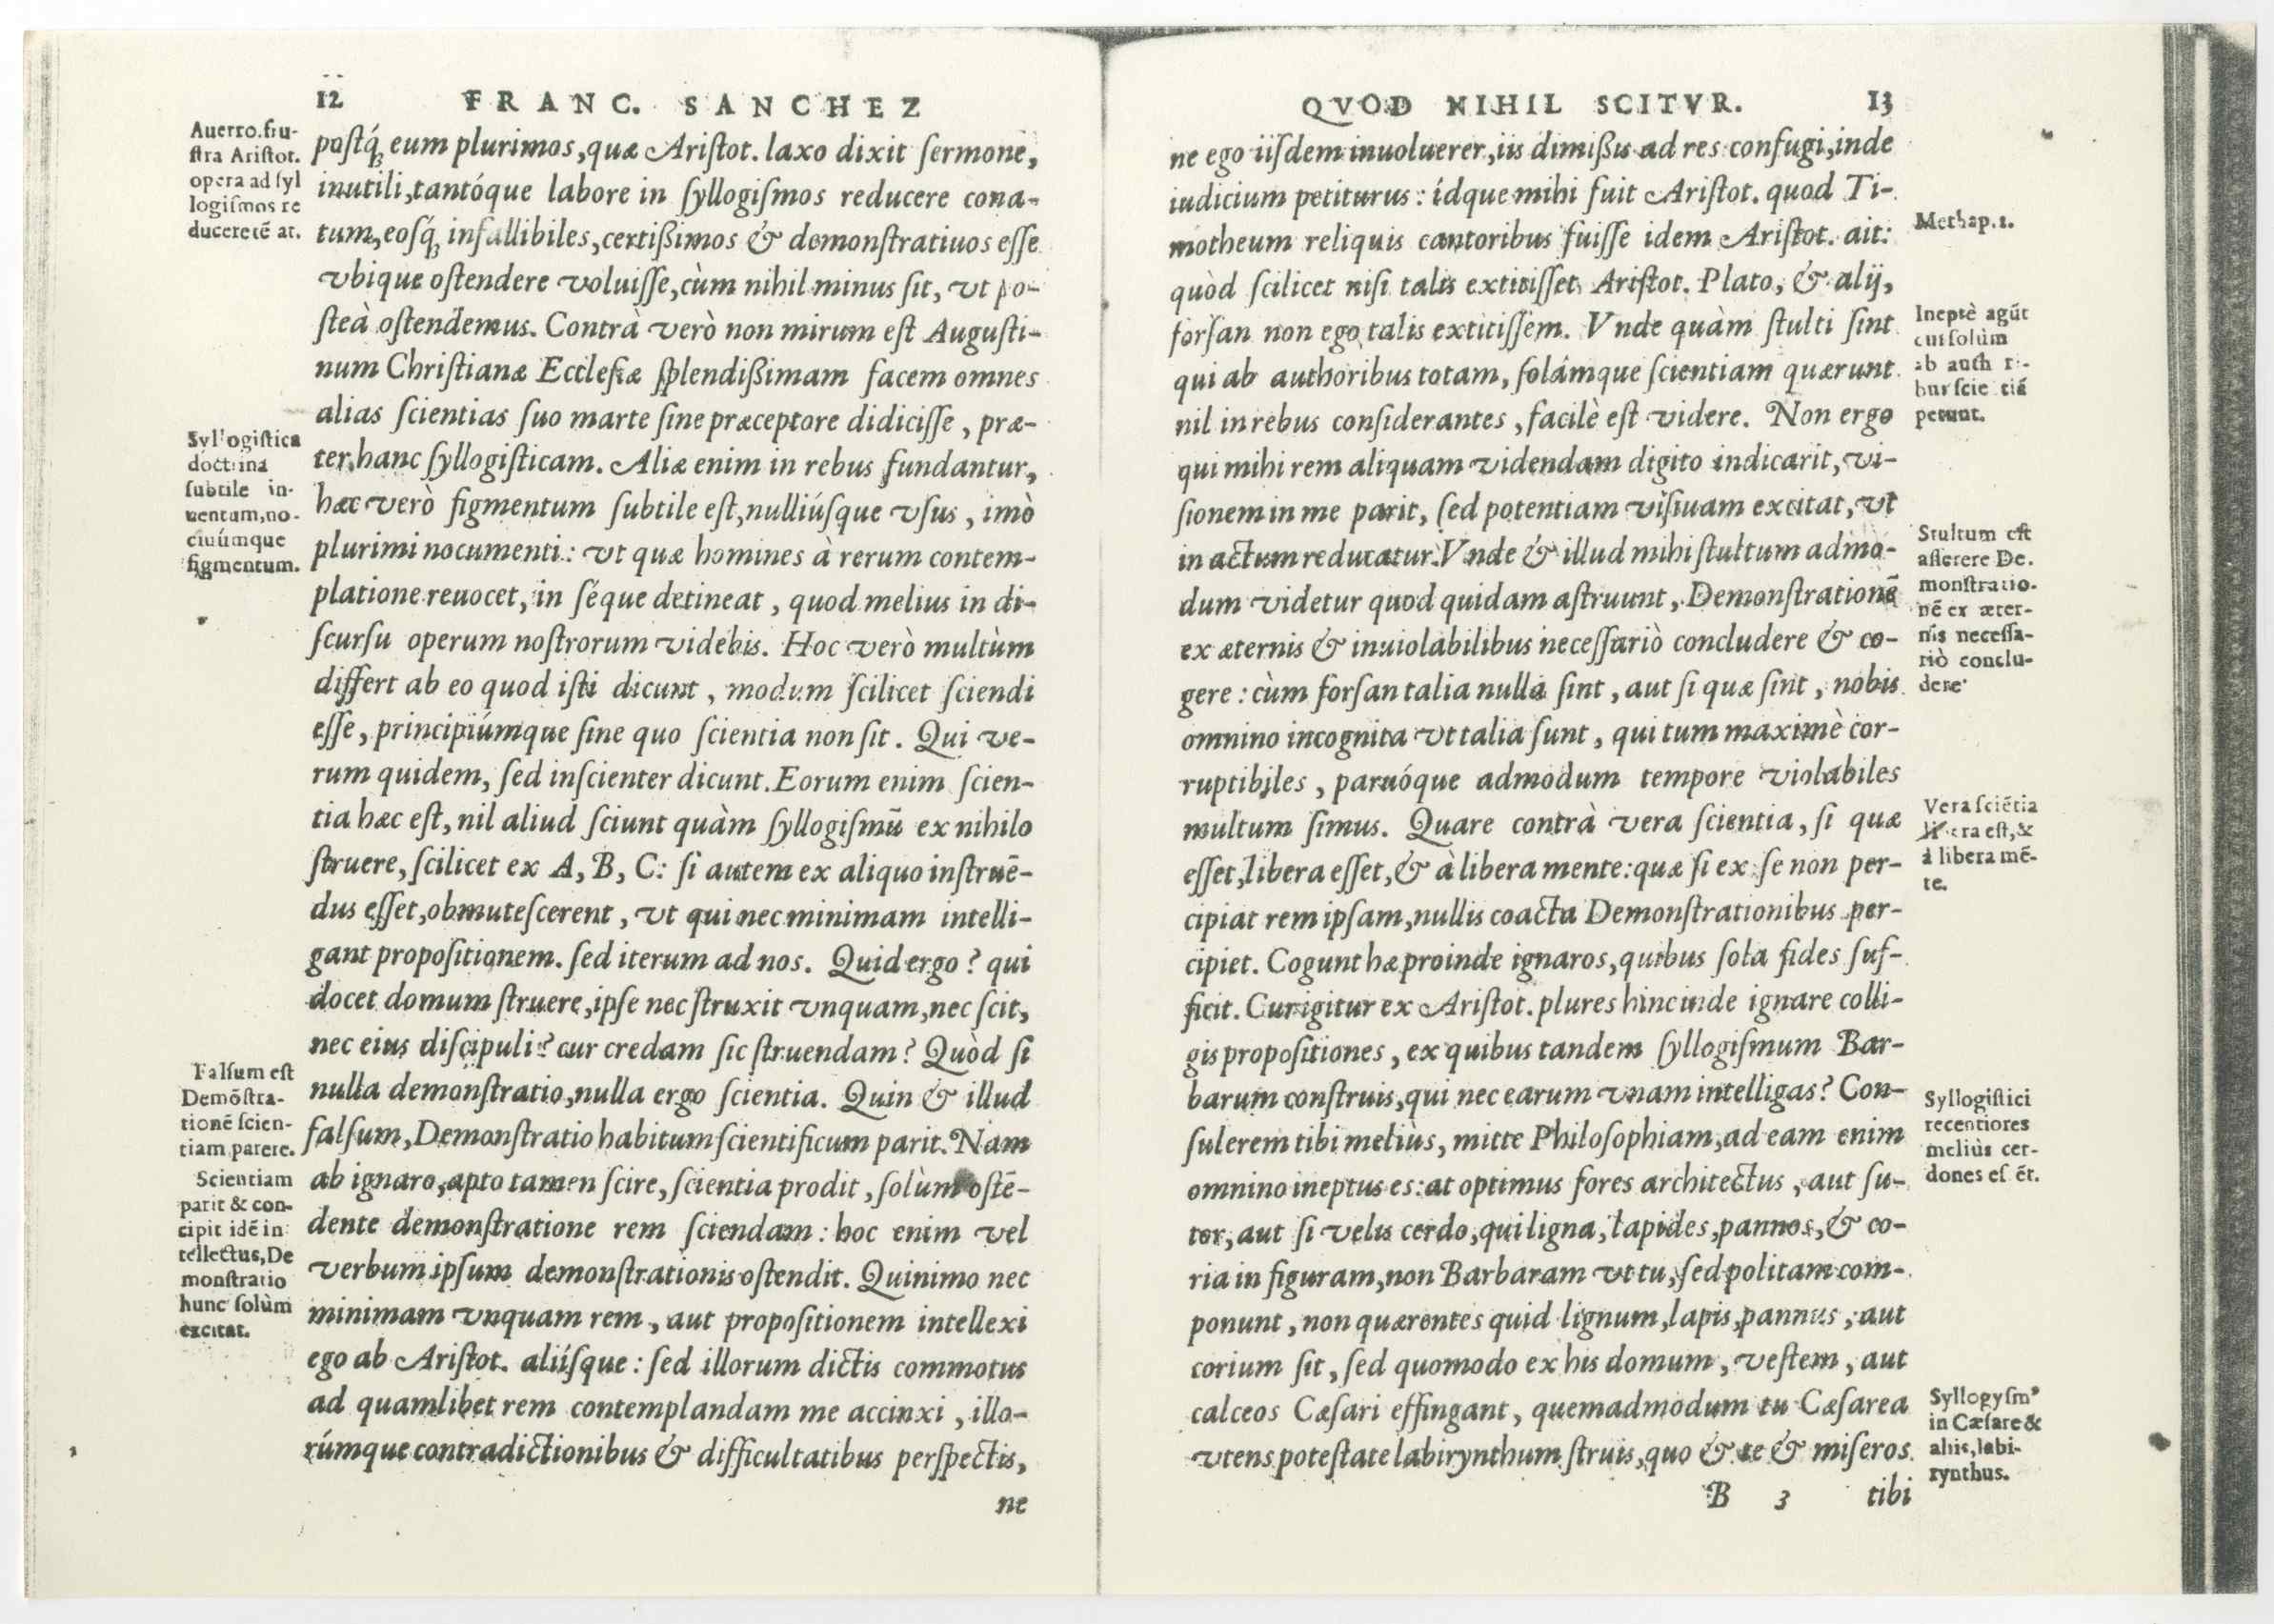 12 FRANC. SANCHEZ
Auerro. fru-
stra Aristot.
opera ad syl
logismos re
ducere tẽ at.
postq́ꝫ eum plurimos, quæ Aristot. laxo dixit sermone,
inutili, tantóque labore in syllogismos reducere cona-
tum, eosq́ꝫ infallibiles, certißimos & demonstratiuos esse
vbique ostendere voluisse, cùm nihil minus sit, vt po-
steà ostendemus. Contrà verò non mirum est Augusti-
num Christianæ Ecclesiæ splendißimam facem omnes
alias scientias suo marte sine præceptore didicisse, præ-
ter hanc syllogisticam. Aliæ enim in rebus fundantur,
hæc verò figmentum subtile est, nulliúsque vsus, imò
plurimi nocumenti: vt quæ homines à rerum contem-
platione reuocet, in séque detineat, quod melius in di-
scursu operum nostrorum videbis. Hoc verò multùm
differt ab eo quod isti dicunt, modum scilicet sciendi
esse, principiúmque sine quo scientia non sit. Qui ve-
rum quidem, sed inscienter dicunt. Eorum enim scien-
tia hæc est, nil aliud sciunt quàm syllogismũ ex nihilo
struere, scilicet ex A, B, C: si autem ex aliquo instruẽ-
dus esset, obmutescerent, vt qui nec minimam intelli-
gant propositionem. sed iterum ad nos. Quid ergo? qui
docet domum struere, ipse nec struxit vnquam, nec scit,
nec eius discipuli? cur credam sic struendam? Quòd si
nulla demonstratio, nulla ergo scientia. Quin & illud
falsum, Demonstratio habitum scientificum parit. Nam
ab ignaro, apto tamen scire, scientia prodit, solùm ostẽ-
dente demonstratione rem sciendam: hoc enim vel
verbum ipsum demonstrationis ostendit. Quinimo nec
minimam vnquam rem, aut propositionem intellexi
ego ab Aristot. aliísque: sed illorum dictis commotus
ad quamlibet rem contemplandam me accinxi, illo-
rúmque contradictionibus & difficultatibus perspectis,
ne
Syllogistica
doctrina
subtile in-
uentum, no-
ciuúmque
figmentum.
Falsum est
Demõstra-
tionẽ scien-
tiam parere.
Scientiam
parit & con-
cipit idẽ in
tellectus, De
monstratio
hunc solùm
excitat.
QVOD NIHIL SCITVR. 13
ne ego iisdem inuoluerer, iis dimißis ad res confugi, inde
iudicium petiturus: ídque mihi fuit Aristot. quod Ti-
motheum reliquis cantoribus fuisse idem Aristot. ait:
quòd scilicet nisi talis extitisset Aristot. Plato, & alij,
forsan non ego talis extitissem. Vnde quàm stulti sint
qui ab authoribus totam, solámque scientiam quærunt
nil in rebus considerantes, facilè est videre. Non ergo
qui mihi rem aliquam videndam digito indicarit, vi-
sionem in me parit, sed potentiam visiuam excitat, vt
in actum reducatur. Vnde & illud mihi stultum admo-
dum videtur quod quidam astruunt, Demonstrationẽ
ex æternis & inuiolabilibus necessariò concludere & co-
gere: cùm forsan talia nulla sint, aut si quæ sint, nobis
omnino incognita vt talia sunt, qui tum maximè cor-
ruptibiles, paruóque admodum tempore violabiles
multum simus. Quare contrà vera scientia, si quæ
esset, libera esset, & à libera mente: quæ si ex se non per-
cipiat rem ipsam, nullis coacta Demonstrationibus per-
cipiet. Cogunt hæ proinde ignaros, quibus sola fides suf-
ficit. Cur igitur ex Aristot. plures hinc inde ignare colli-
gis propositiones, ex quibus tandem syllogismum Bar-
barum construis, qui nec earum vnam intelligas? Con-
sulerem tibi meliùs, mitte Philosophiam, ad eam enim
omnino ineptus es: at optimus fores architectus, aut su-
tor, aut si velis cerdo, qui ligna, lapides, pannos, & co-
ria in figuram, non Barbaram vt tu, sed politam com-
ponunt, non quærentes quid lignum, lapis, pannus, aut
corium sit, sed quomodo ex his domum, vestem, aut
calceos Cæsari effingant, quemadmodum tu Cæsarea
vtens potestate labirynthum struis, quo & te & miseros
B 3 tibi
Methap. 1.
Ineptè agũt
cui solùm
ab auth ri-
bus scie tiã
petunt.
Stultum est
asserere De.
monstratio-
nẽ ex æter-
nis necessa-
riò conclu-
dere
Vera sciẽtia
era est, &
à libera mẽ-
te.
Syllogistici
recentiores
meliùs cer-
dones es ẽt.
Syllogysm9
in Cæsare &
aliis, labi-
rynthus.